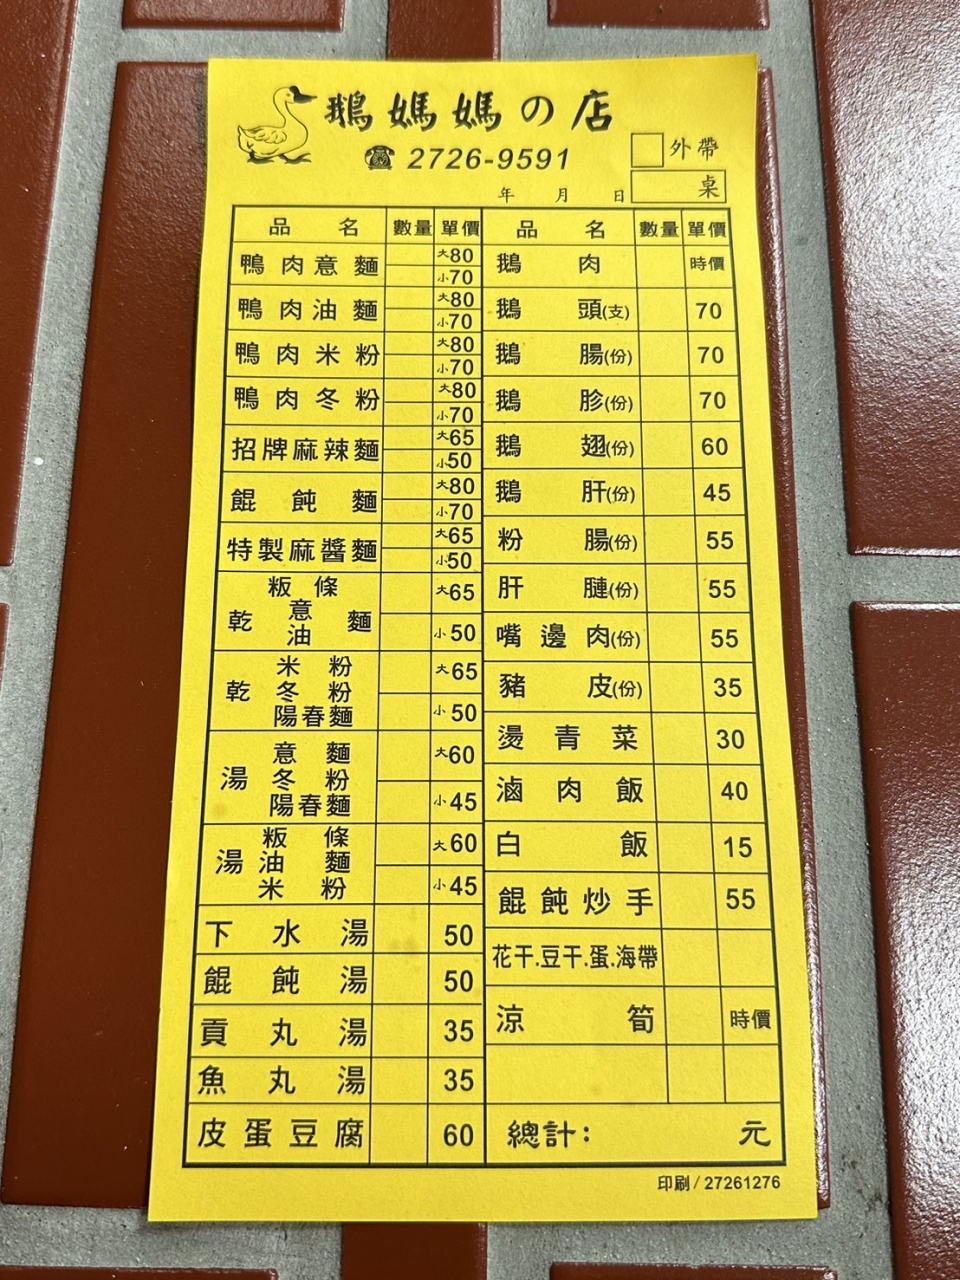 鵝媽媽の店
☎ 2726-9591
外帶
年 月 日 桌
品名 數量 單價
鴨肉意麵 大80 小70
鴨肉油麵 大80 小70
鴨肉米粉 大80 小70
鴨肉冬粉 大80 小70
招牌麻辣麵 大65 小50
餛飩麵 大80 小70
特製麻醬麵 大65 小50
粄條
乾 意 麵 大65 小50
油
米粉
乾 冬粉 大65 小50
陽春麵
意麵
湯 冬粉 大60 小45
陽春麵
粄條
湯 油麵 大60 小45
米粉
下水湯 50
餛飩湯 50
貢丸湯 35
魚丸湯 35
皮蛋豆腐 60
品名 數量 單價
鵝肉 時價
鵝頭(支) 70
鵝腸(份) 70
鵝胗(份) 70
鵝翅(份) 60
鵝肝(份) 45
粉腸(份) 55
肝膤(份) 55
嘴邊肉(份) 55
豬皮(份) 35
燙青菜 30
滷肉飯 40
白飯 15
餛飩炒手 55
花干.豆干.蛋.海帶
涼筍 時價
總計: 元
印刷/27261276